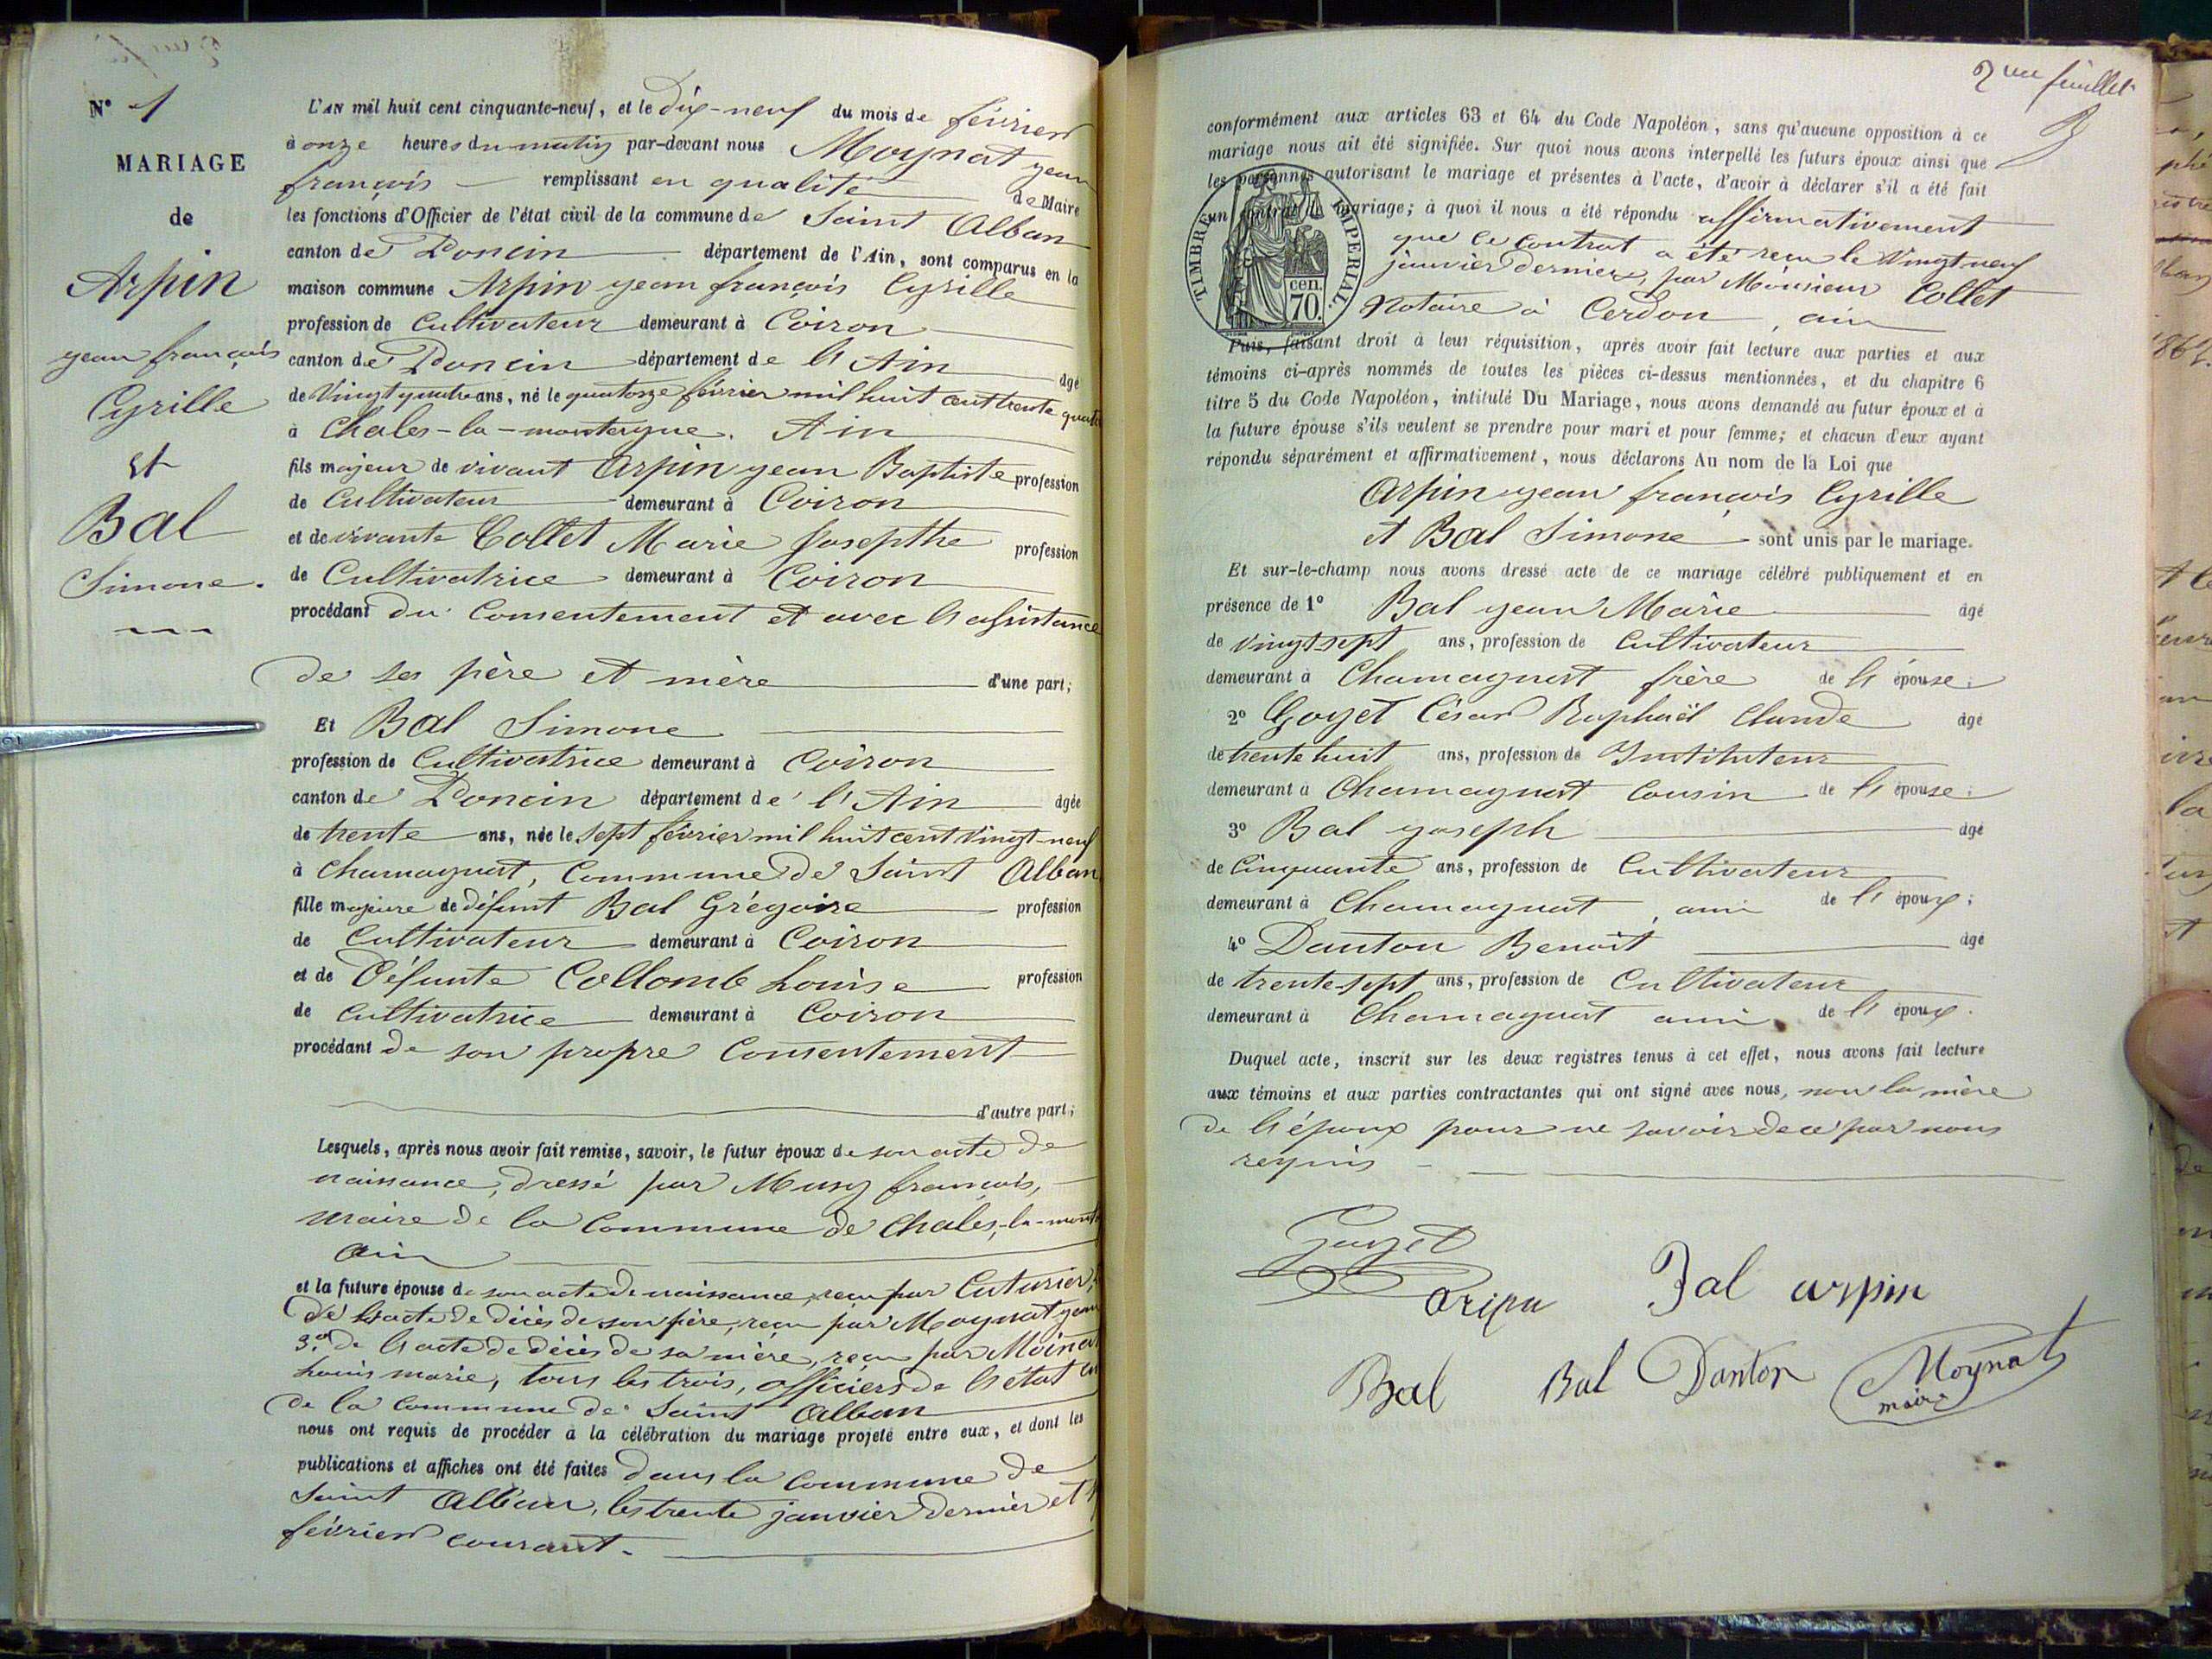 N° 1
MARIAGE
de
Arpin
jean françois
Cyrille
et
Bal
Simone.
L'AN mil huit cent cinquante-neuf, et le Dix-neuf du mois de février
à onze heures du matin par-devant nous Moynat jean
françois remplissant en qualité de Maire
les fonctions d'Officier de l'état civil de la commune de Saint Alban
canton de Poncin département de l'Ain, sont comparus en la
maison commune Arpin jean françois Cyrille
profession de Cultivateur demeurant à Coiron
canton de Poncin département de l'Ain âgé
de Vingt quatre ans, né le quatorze février mil huit cent trente quatre
à Chales-la-montagne. Ain
fils majeur de vivant Arpin jean Baptiste profession
de Cultivateur demeurant à Coiron
et de vivante Collet Marie Josepthe profession
de Cultivatrice demeurant à Coiron
procédant du Consentement et avec l'assistance
de ses père et mère d'une part;
Et Bal Simone
profession de Cultivatrice demeurant à Coiron
canton de Poncin département de l'Ain âgée
de trente ans, née le Sept février mil huit cent Vingt-neuf
à Chamagnat, Commune de Saint Alban
fille majeure de défunt Bal Grégoire profession
de Cultivateur demeurant à Coiron
et de Défunte Collomb Louise profession
de Cultivatrice demeurant à Coiron
procédant de son propre Consentement
d'autre part;
Lesquels, après nous avoir fait remise, savoir, le futur époux de son acte de
naissance, dressé par Musy françois,
Maire de la Commune de Chales-la-mont
Ain
et la future épouse de son acte de naissance, reçu par Cuturier,
de l'acte de décès de son père, reçu par Moynat jean
3.° de l'acte de décès de sa mère, reçu par Moinat
Louis marie, tous les trois, officiers de l'état
de la Commune de Saint Alban
nous ont requis de procéder à la célébration du mariage projeté entre eux, et dont les
publications et affiches ont été faites dans la Commune de
Saint Alban, les trente janvier dernier et
février courant.
2me feuillet
conformément aux articles 63 et 64 du Code Napoléon, sans qu'aucune opposition à ce
mariage nous ait été signifiée. Sur quoi nous avons interpellé les futurs époux ainsi que
les personnes autorisant le mariage et présentes à l'acte, d'avoir à déclarer s'il a été fait
un contrat de mariage; à quoi il nous a été répondu affirmativement
que ce contrat a été reçu le Vingt neuf
janvier dernier, par Monsieur Collet
Notaire à Cerdon, ain
TIMBRE IMPERIAL.
cen.
70.
Puis, faisant droit à leur réquisition, après avoir fait lecture aux parties et aux
témoins ci-après nommés de toutes les pièces ci-dessus mentionnées, et du chapitre 6
titre 5 du Code Napoléon, intitulé Du Mariage, nous avons demandé au futur époux et à
la future épouse s'ils veulent se prendre pour mari et pour femme; et chacun d'eux ayant
répondu séparément et affirmativement, nous déclarons Au nom de la Loi que
Arpin jean françois Cyrille
et Bal Simone sont unis par le mariage.
Et sur-le-champ nous avons dressé acte de ce mariage célébré publiquement et en
présence de 1° Bal jean Marie âgé
de Vingt-sept ans, profession de Cultivateur
demeurant à Chamagnat frère de l'épouse;
2° Goyet César Raphaël Claude âgé
de trente huit ans, profession de Instituteur
demeurant à Chamagnat Cousin de l'épouse;
3° Bal joseph âgé
de Cinquante ans, profession de Cultivateur
demeurant à Chamagnat, ami de l'époux;
4° Danton Benoit âgé
de trente-sept ans, profession de Cultivateur
demeurant à Chamagnat ami de l'époux.
Duquel acte, inscrit sur les deux registres tenus à cet effet, nous avons fait lecture
aux témoins et aux parties contractantes qui ont signé avec nous, non la mère
de l'époux pour ne savoir de ce par nous
requis
Goyet
Bal arpin
Bal Bal Danton Moynat
maire